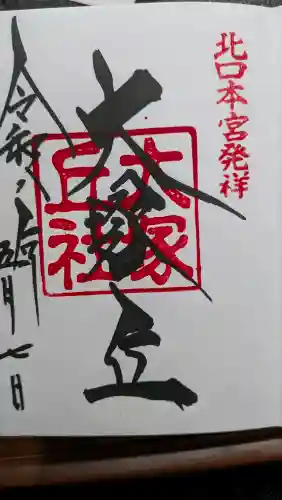 北口本宮発祥
大塚丘
大塚
丘社
令和
五月七日